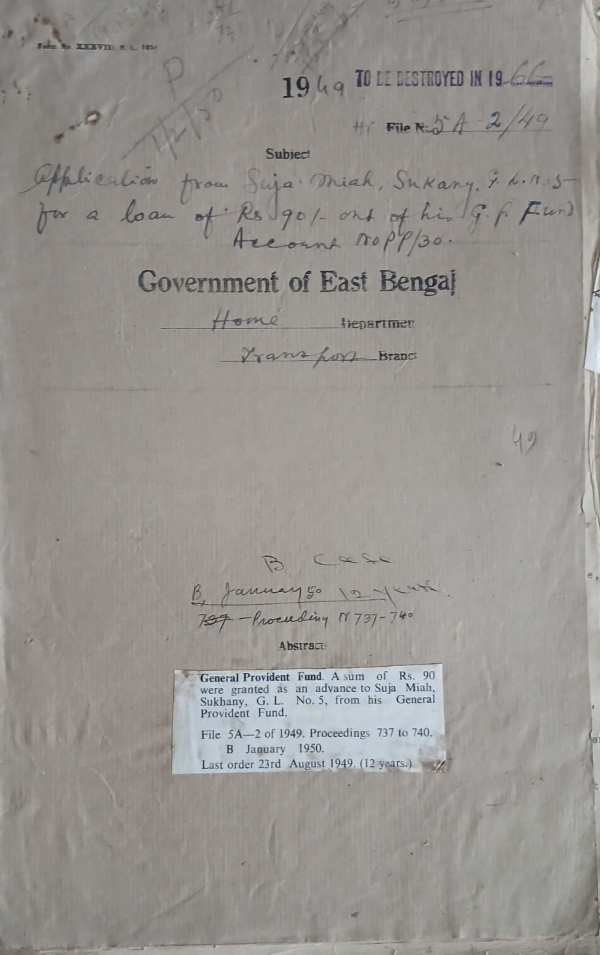 Form No. XXXVIII
P
1/2/50
1949 TO BE DESTROYED IN 1966
File No. 5A-2/49
Subject
Application from Suja Miah, Sukany, G. L. No 5
for a loan of Rs 90/- out of his G. P. Fund
Account No PP/30.
Government of East Bengal
Home Departmen
Transport Branc
49
B Case
B, January 50 12 years.
737 — Proceeding N 737-740
Abstract
General Provident Fund. A sum of Rs. 90
were granted as an advance to Suja Miah,
Sukhany, G. L. No. 5, from his General
Provident Fund.
File 5A—2 of 1949. Proceedings 737 to 740.
B January 1950.
Last order 23rd August 1949. (12 years.)